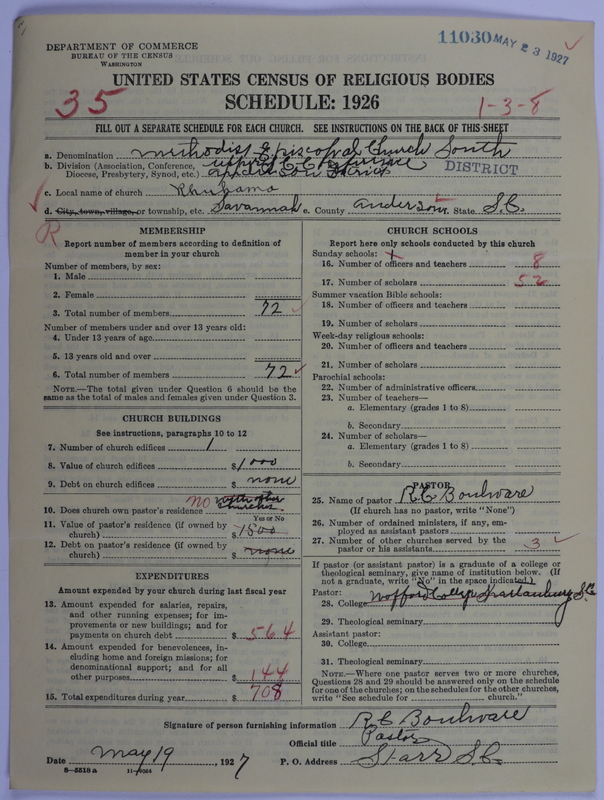 11030 MAY 23 1927
DEPARTMENT OF COMMERCE
BUREAU OF THE CENSUS
WASHINGTON
UNITED STATES CENSUS OF RELIGIOUS BODIES
SCHEDULE: 1926
35
1-3-8
FILL OUT A SEPARATE SCHEDULE FOR EACH CHURCH. SEE INSTRUCTIONS ON THE BACK OF THIS SHEET
a. Denomination Methodist Episcopal Church South
b. Division (Association, Conference, Upper S C Conference
Diocese, Presbytery, Synod, etc.) Anderson District DISTRICT
c. Local name of church Ruhama
d. City, town, village, or township, etc. Savannah e. County Anderson State S.C.
R
MEMBERSHIP
Report number of members according to definition of
member in your church
Number of members, by sex:
1. Male
2. Female
3. Total number of members 72
Number of members under and over 13 years old:
4. Under 13 years of age
5. 13 years old and over
6. Total number of members 72
NOTE.—The total given under Question 6 should be the
same as the total of males and females given under Question 3.
CHURCH BUILDINGS
See instructions, paragraphs 10 to 12
7. Number of church edifices 1
8. Value of church edifices $1000
9. Debt on church edifices $ none
no with other
10. Does church own pastor's residence churches
Yes or No
11. Value of pastor's residence (if owned by
church) $ 1500
12. Debt on pastor's residence (if owned by
church) $ none
EXPENDITURES
Amount expended by your church during last fiscal year
13. Amount expended for salaries, repairs,
and other running expenses; for im-
provements or new buildings; and for
payments on church debt $ 564
14. Amount expended for benevolences, in-
cluding home and foreign missions; for
denominational support; and for all
other purposes $ 144
15. Total expenditures during year $ 708
CHURCH SCHOOLS
Report here only schools conducted by this church
Sunday schools:
16. Number of officers and teachers 8
17. Number of scholars 52
Summer vacation Bible schools:
18. Number of officers and teachers
19. Number of scholars
Week-day religious schools:
20. Number of officers and teachers
21. Number of scholars
Parochial schools:
22. Number of administrative officers
23. Number of teachers—
a. Elementary (grades 1 to 8)
b. Secondary
24. Number of scholars—
a. Elementary (grades 1 to 8)
b. Secondary
PASTOR
25. Name of pastor R C Boulware
(If church has no pastor, write "None")
26. Number of ordained ministers, if any, em-
ployed as assistant pastors
27. Number of other churches served by the
pastor or his assistants 3
If pastor (or assistant pastor) is a graduate of a college or
theological seminary, give name of institution below. (If
not a graduate, write "No" in the space indicated.)
Pastor:
28. College Wofford College Spartanburg S.C.
29. Theological seminary
Assistant pastor:
30. College
31. Theological seminary
NOTE.—Where one pastor serves two or more churches,
Questions 28 and 29 should be answered only on the schedule
for one of the churches; on the schedules for the other churches,
write "See schedule for church."
Signature of person furnishing information R C Boulware
Official title Pastor
Date May 19, 1927 P. O. Address Starr S.C.
8-5518 a